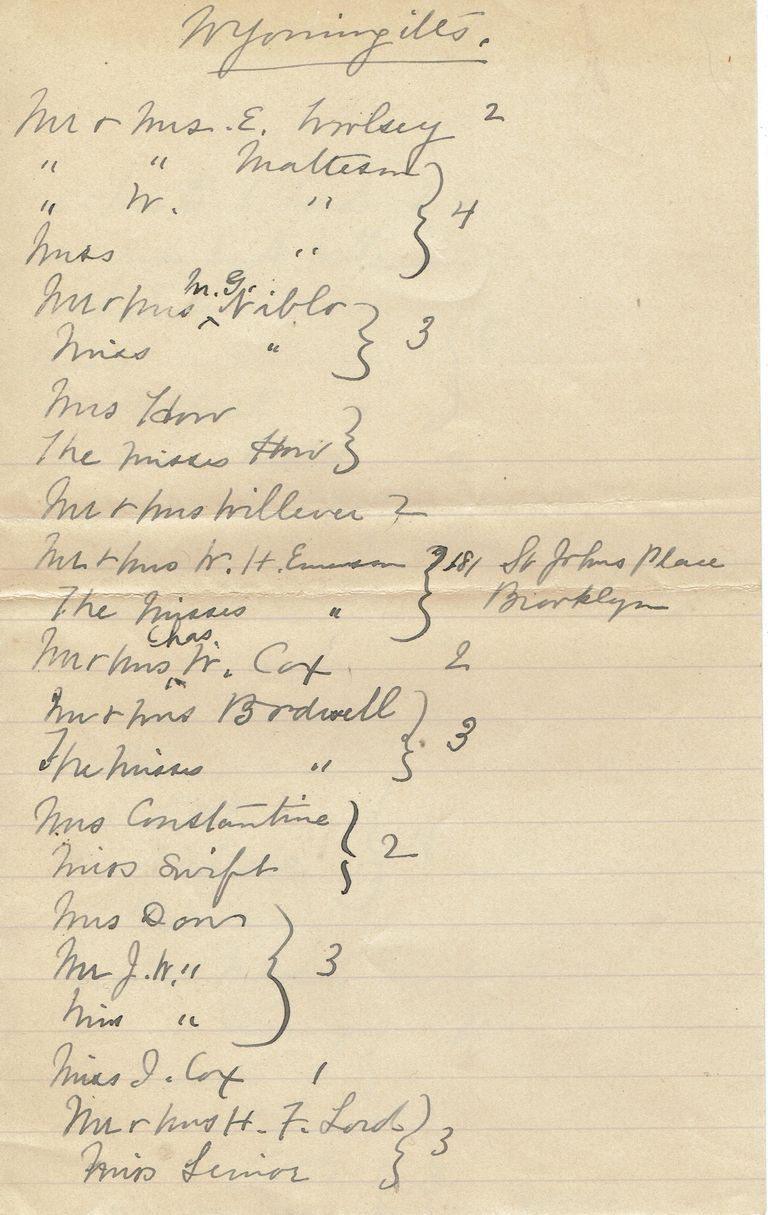 Wyomingites.
Mr & Mrs. E. Wolsey 2
" " Matteson
" W. " 4
Miss "
Mr & Mrs M. G. Niblo
Miss " 3
Mrs How
The Misses How
Mr & Mrs Willever 2
Mr & Mrs W. H. Emerson 181 St Johns Place
The Misses " Brooklyn
Mr & Mrs Chas. W. Cox 2
Mr & Mrs Bordwell
The Misses " 3
Mrs Constantine
Miss Swift 2
Mrs
Mr J. W. " 3
Miss "
Miss I. Cox 1
Mr & Mrs H. F. Lord
Miss 3